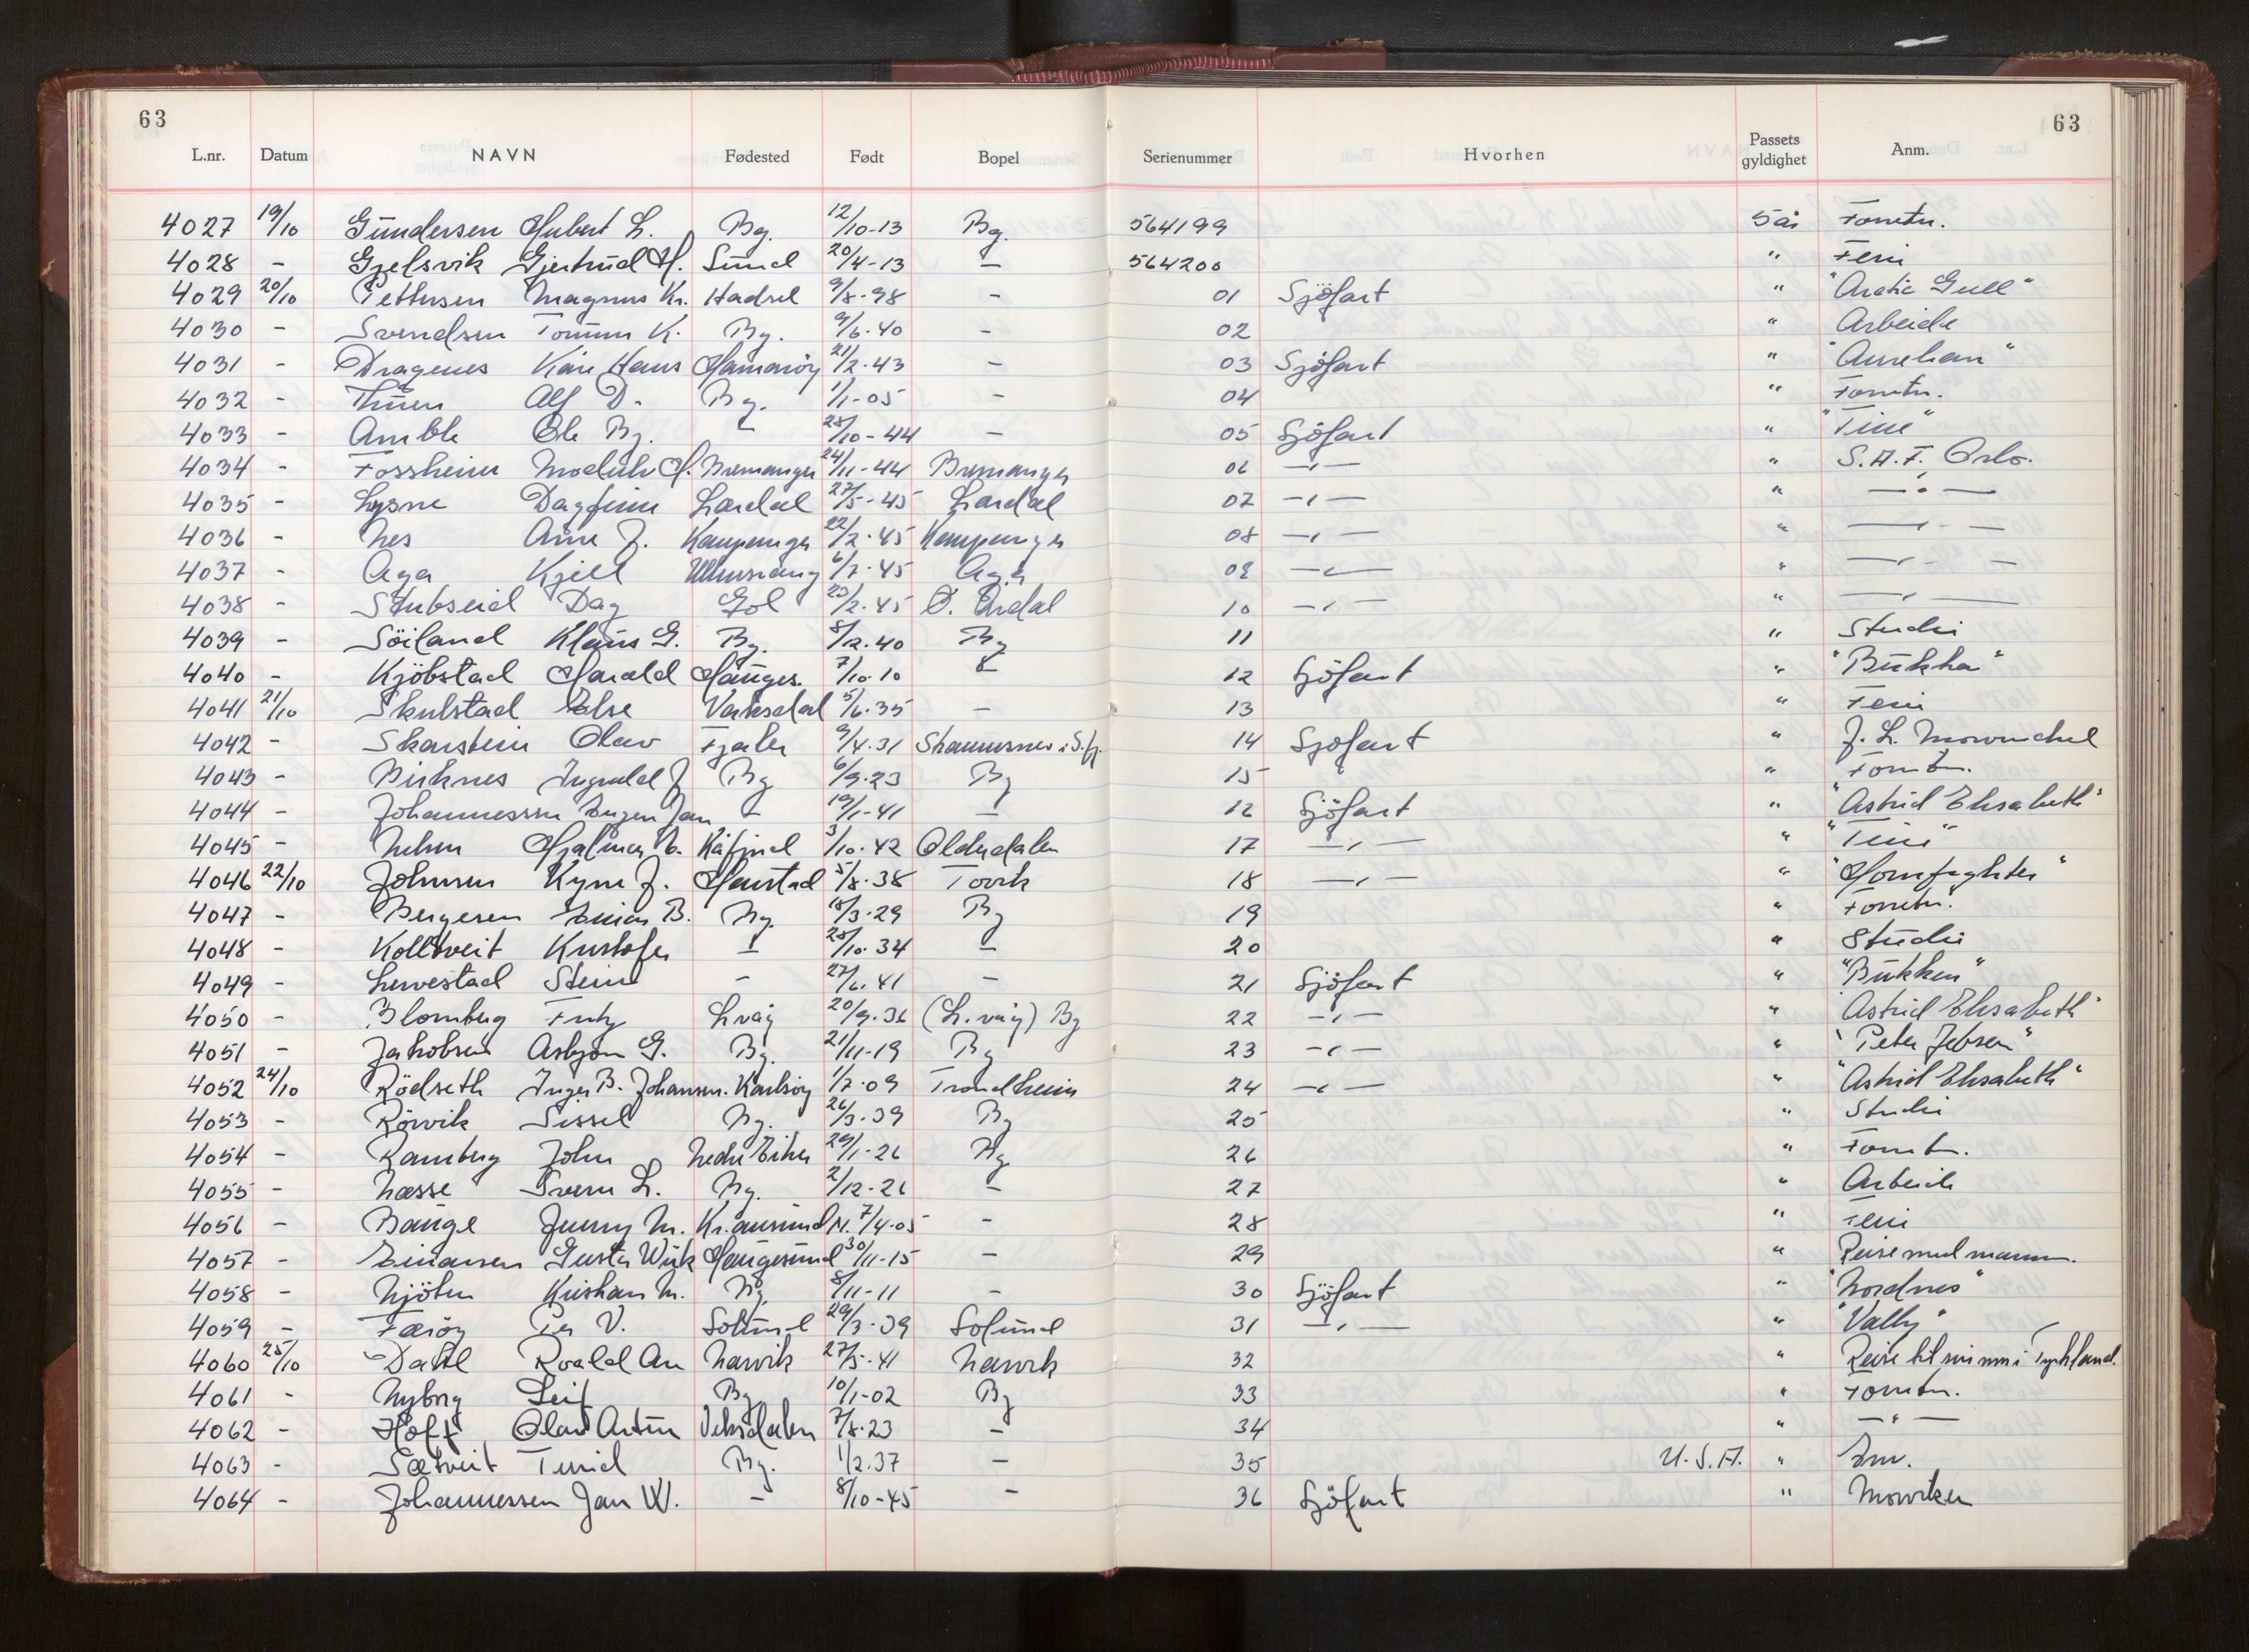 63 63
L.nr. Datum NAVN Fødested Født Bopel Serienummer Hvorhen Passets gyldighet Anm.
4027 19/10 Gundersen Hubert L. Bg. 12/10-13 Bg. 564199 5 år Forretn.
4028 - Gjelsvik Gjertrud H. Sund 20/4-13 - 564200 " Ferie
4029 20/10 Pettersen Magnus Kr. Hadsel 9/8-98 - 01 Sjöfart " "Arctic Gull"
4030 - Svendsen Tommy K. Bg. 9/6.40 - 02 " Arbeide
4031 - Dragenes Kåre Hans Hamaröy 21/2.43 - 03 Sjöfart "
4032 - Thuen Alf D. Bg. 1/1-05 - 04 " Forretn.
4033 - Amble Ole Bg. - 28/10-44 - 05 Sjöfart " "Tine"
4034 - Fossheim H. Bremanger 24/11-44 Bremanger 06 -"- " S.A.F. Oslo.
4035 - Lysne Dagfinn Lærdal 27/5-45 Lærdal 07 -"- " -"-
4036 - Nes Arne J. Kaupanger 22/2.45 Kaupanger 08 -"- " -"-
4037 - Aga Kjell Ullensvang 6/7.45 Aga 09 -"- " -"-
4038 - Stubseid Dag Gol 23/2.45 Ö. Årdal 10 -"- " -"-
4039 - Söiland Klaus G. Bg. 8/12.40 Bg 11 " Studie
4040 - Kjöbstad Harald Hauges. 7/10.10 - 12 Sjöfart " "Bukha"
4041 21/10 Skulstad Else Vaksdal 5/6.35 - 13 " Ferie
4042 - Skarstein Olav Fjaler 9/4.31 i S.fj. 14 Sjöfart " J. L. Mowinckel
4043 - Birknes Ingvald J Bg 6/9.23 Bg 15 " Forretn.
4044 - Johannessen Jan - 19/1-41 - 16 Sjöfart " "Astrid Elisabeth"
4045 - Nilsen Hjalmar A. Kåfjord 3/10.42 Olderdalen 17 -"- " "Tine"
4046 22/10 Johnsen J. Harstad 5/8.38 Tovik 18 -"- "
4047 - Bergesen Einar B. Bg. 18/3.29 Bg 19 " Forretn.
4048 - Kolltveit Kristofer - 28/10.34 - 20 " Studie
4049 - Lervestad Stein - 27/6.41 - 21 Sjöfart "
4050 - Blomberg Fritz L.våg 20/9.36 (L.våg) Bg 22 -"- " "Astrid Elisabeth"
4051 - Jakobsen Asbjørn G. Bg. 21/11-19 Bg 23 -"- " "Peter Jebsen"
4052 24/10 Rödseth Inger B. Johansen. Karlsöy 1/7.09 Trondheim 24 -"- " "Astrid Elisabeth"
4053 - Rörvik Sissel Bg. 26/3.39 Bg 25 " Studie
4054 - Ramberg John Nedre Eiker 29/1-26 Bg 26 " Forretn.
4055 - Næsse Sverre L. Bg. 2/12-26 - 27 " Arbeide
4056 - Bauge Jenny M. Kr.ansund N. 7/4-05 - 28 " Ferie
4057 - Einarsen Haugesund 30/11-15 - 29 " Reise med mannen.
4058 - Njöten Kristian M. Bg. 8/11-11 - 30 Sjöfart " "Nordnes"
4059 - Færöy Per V. Solund 29/3-39 Solund 31 -"- " "Vally"
4060 25/10 Dahl Roald Narvik 27/5-41 Narvik 32 " Reise til i Tyskland.
4061 - Nyborg Leif Bg 10/1-02 Bg 33 " Forretn.
4062 - Hoff Olav 7/8.23 - 34 " -"-
4063 - Sætveit Turid Bg. 1/2.37 - 35 U.S.A. " Emi.
4064 - Johannessen Jan W. - 8/10-45 - 36 Sjöfart "